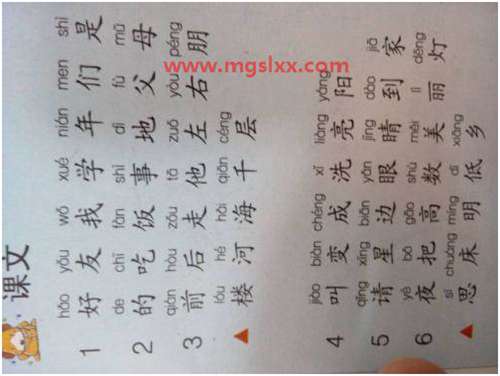 课文
hǎo yǒu wǒ xué nián men shì
1 好 友 我 学 年 们 是
de chī fàn shì dì fù mǔ
2 的 吃 饭 事 地 父 母
qián hòu zǒu tā zuǒ yòu péng
3 前 后 走 他 左 右 朋
lóu hé hǎi qiān céng
楼 河 海 千 层
jiào biàn chéng xǐ liàng yáng
4 叫 变 成 洗 亮 阳
qǐng xīng biān yǎn jīng dào jiā
5 请 星 边 眼 睛 到 家
yè bǎ gāo shù měi lì dēng
6 夜 把 高 数 美 丽 灯
sī chuáng míng dī xiāng
思 床 明 低 乡
www.mgslxx.com